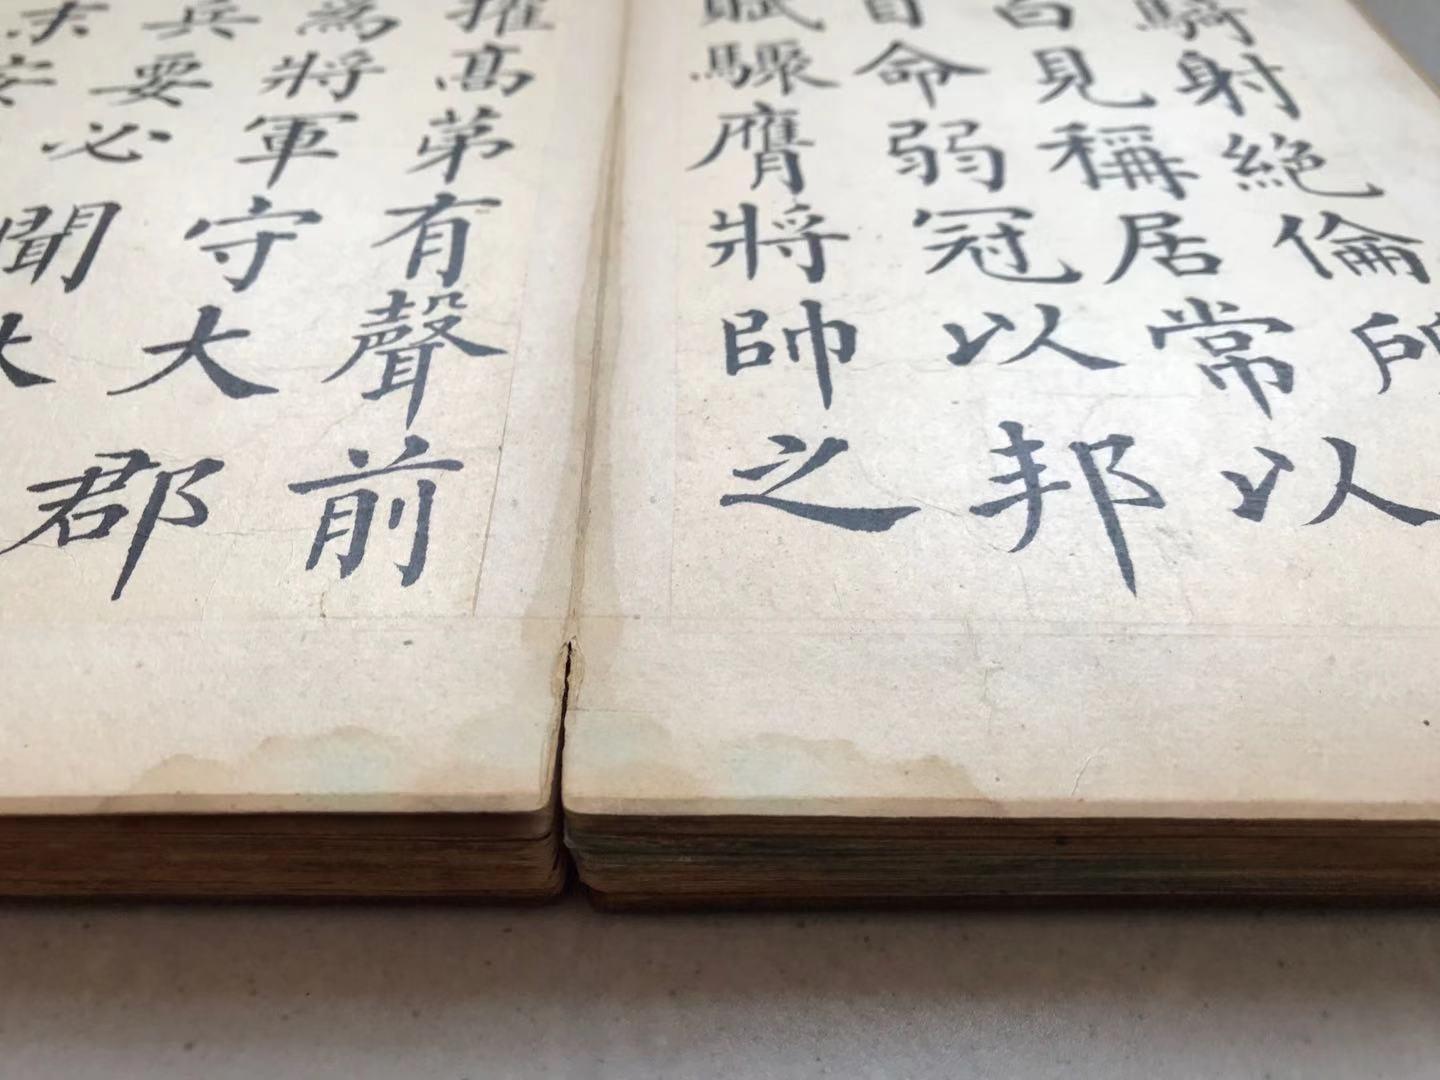 騎射絕倫
見稱居常以
命弱冠以邦
賦驟膺將帥之
擢高弟有聲前
為將軍守大郡
兵要必聞